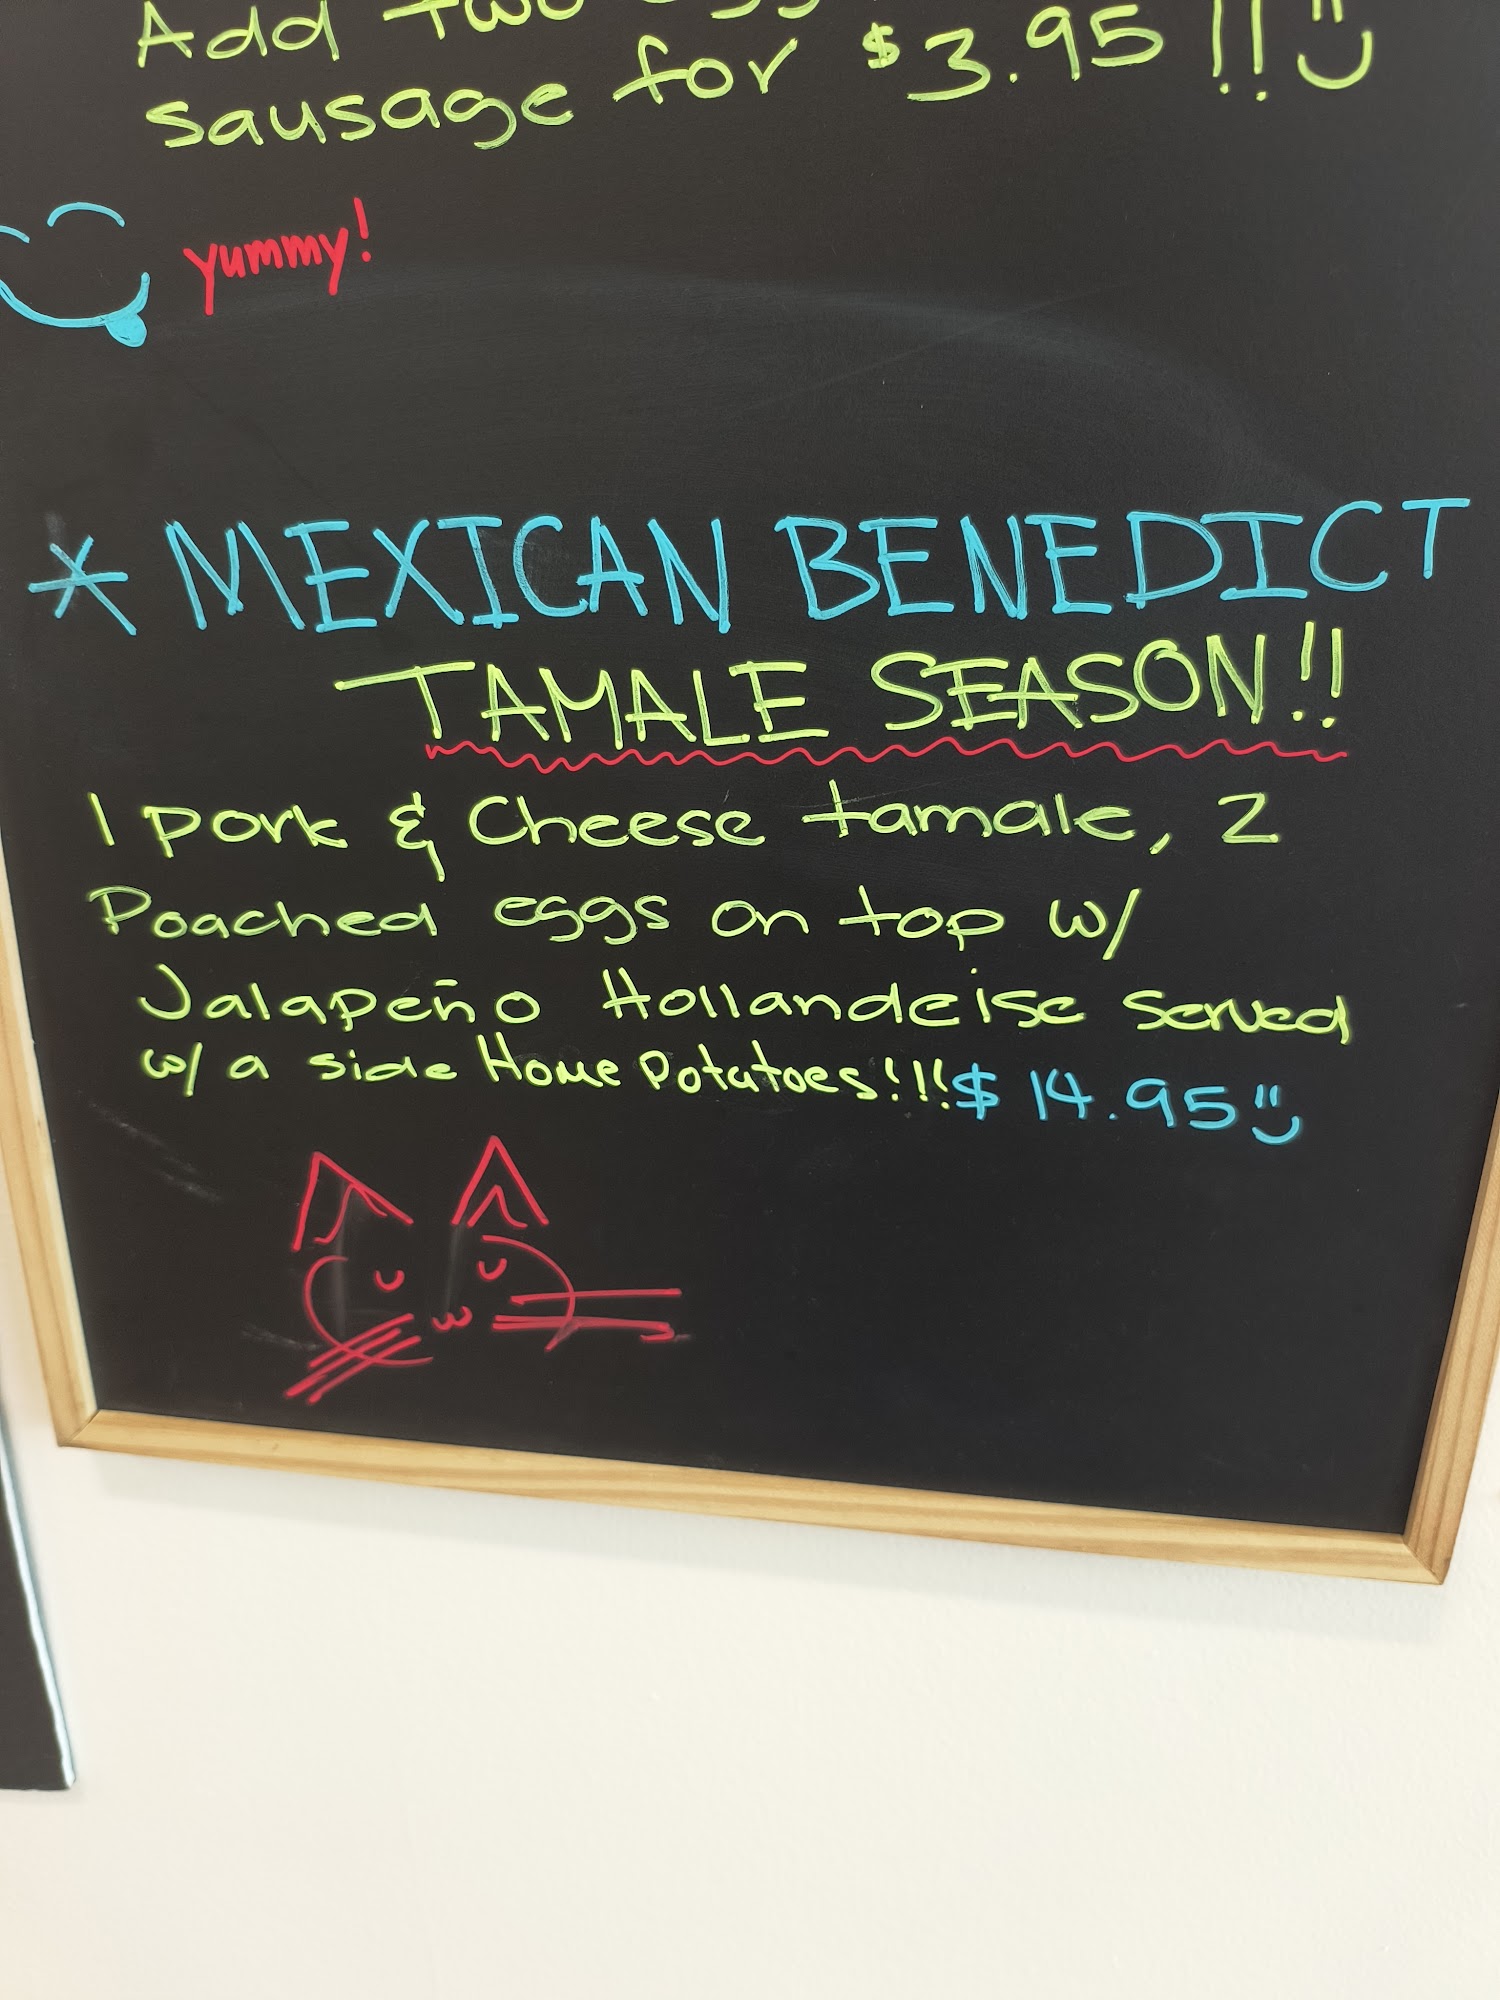 Add two
sausage for $3.95!!
yummy!
* MEXICAN BENEDICT
TAMALE SEASON!!
1 Pork & Cheese tamale, 2
Poached eggs on top w/
Jalapeño Hollandeise served
w/ a side Home Potatoes!!! $14.95